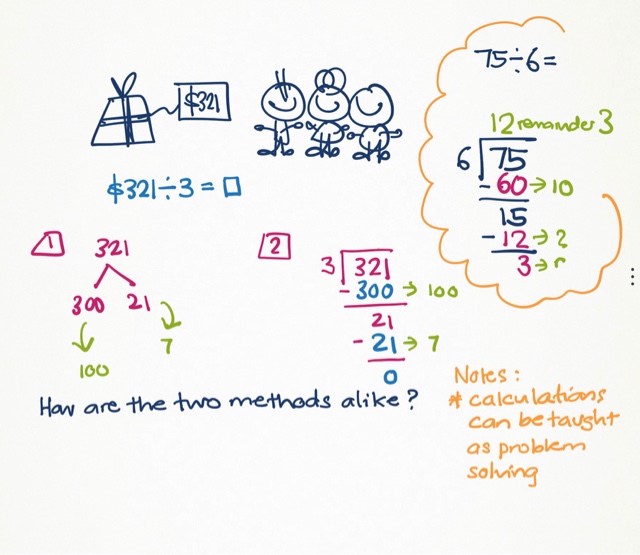 $321
$321÷3=□
75÷6=
12 remainder 3
6 75
-60→10
15
-12→2
3→r
1
321
300 21
100 7
2
3 321
-300→100
21
-21→7
0
How are the two methods alike?
Notes:
* calculations
can be taught
as problem
solving